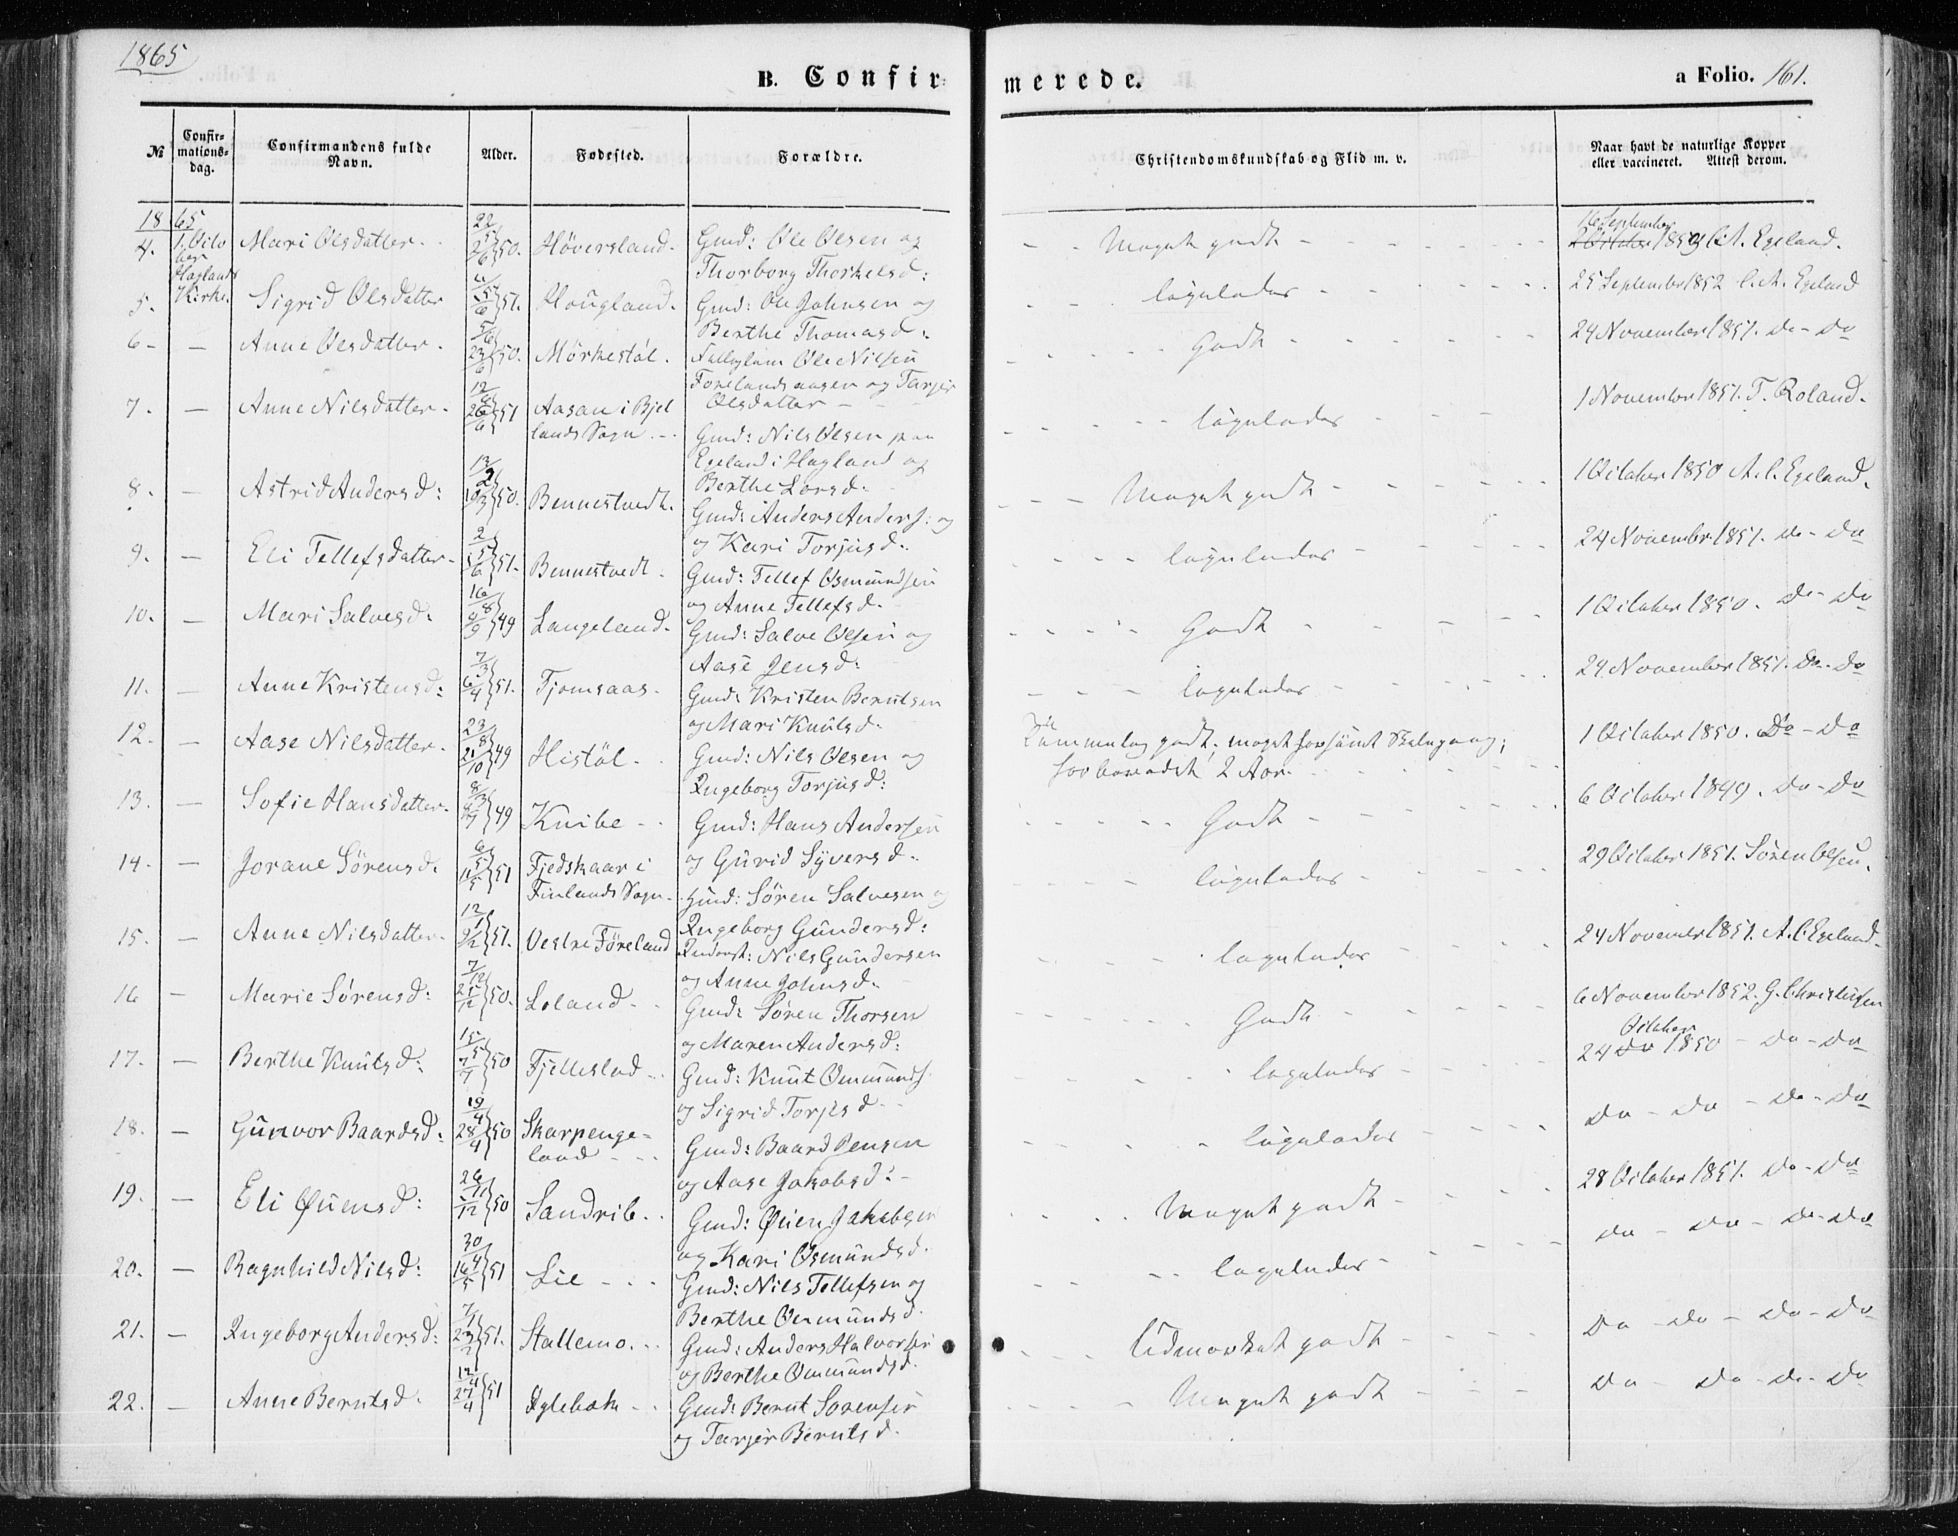 1865
B. Confirmerede.
a Folio. 161.
№ Confirmationsdag. Confirmandens fulde Navn. Alder. Fødested. Forældre. Christendomskundskab og Flid m. v. Naar havt de naturlige Kopper eller vaccineret. Attest derom.
1865
4. 1 October Haglands Kirke. Mari Olsdatter. 22/5 2/6 50. Höversland. Gmd: Ole Olsen og Thorborg Thorkelsd: Meget godt 16 September 1850 C. A. Egeland.
5. Sigrid Olsdatter 15/6 51. Hougland. Gmd: Ole Johnsen og Berthe Thomasd: ligeledes 25 September 1852 C. A. Egeland
6 - — Anne Olsdatter. 5/6 23/6 50. Mörkestöl. Ole Nilsen Forelandsaasen og Tarjer Olsdatter Godt 24 November 1851. do - do
7. — Anne Nilsdatter. 51 Aasan i Bjellands Sogn. Gmd: Nils Olsen paa Egeland i Hægland og Berthe Larsd. ligeledes 1 November 1851. T. Roland.
8. — Astrid Andersd: 13/2 10/3 50. Bennestvedt. Gmd: Anders Anders: og og Kari Torjusd. Meget godt 1 October 1850 A. C. Egeland.
9. — Eli Tellefsdatter 2/5 51. Bennestvedt. Gmd: Tellef Osmundsen og Anne Tellefsd. ligeledes 24 November 1851. do - do
10. — Mari Salvesd: 16/8 49 Langeland. Gmd: Salve Olsen og Aase Jensd: Godt 1 October 1850. do - do
11. — Anne Kristensd: 7/3 6/4 51. Tjomsaas. Gmd: Kristen Berntsen og Mari Knutsd. ligeledes 24 November 1851. do - do
12. — Aase Nilsdatter. 23/8 21/10 49 Histöl. Gmd: Nils Olsen og Ingeborg Torjusd: Temmelig godt; meget forsömt Skolegang; forberedt 2 Aar. 1 October 1850. do - do
13. — Sofie Hansdatter. 49 Knibe Gmd: Hans Andersen og Gurid Syversd. Godt 6 October 1849. do - do
14. — Jorane Sörensd. 6/5 11/5 51 Fjedskaar i Finlands Sogn. Gmd: Sören Salvesen og Ingeborg Gundersd: ligeledes 29 October 1851. Sören Olsen.
15. — Anne Nilsdatter. 12/1 51. Vestre Föreland Inderst: Nils Gundersen og Anne Johnsd. ligeledes 24 November 1851. A. C. Egeland.
16 — Marie Sörensd: 7/12 50. Loland Gmd: Sören Thorsen og Maren Andersd: Godt 6 November 1852. G. Christensen
17. — Berthe Knutsd: 15/5 7/7 50 Fjellestad Gmd: Knut Ommunds. og Sigrid Torjusd ligeledes 24 October 1850 - do - do
18. — Gunvor Baardsd: 19/4 28/4 50 Skarpengeland Gmd: Baard Jensen og Aase Jakobsd: ligeledes do - do - do - do
19. — Eli Øuensd: 50 Sandrib Gmd: Øuen Jakobsen og Kari Osmundsd. Meget godt 28 October 1851. do - do
20. — Ragnhild Nilsd: 30/4 16/5 51 Lie Gmd: Nils Tellefsen og Berthe Ommundsd. ligeledes do - do - do - do
21. — Ingeborg Andersd: 7/1 51. Stallemo. Gmd: Anders Halvorsen og Berthe Ommundsd. Udmærket godt do - do - do - do
22. — Anne Berntsd. 12/4 27/4 51 Gmd: Bernt Sorensen og Tarjer Berntsd. Meget godt do - do - do - do